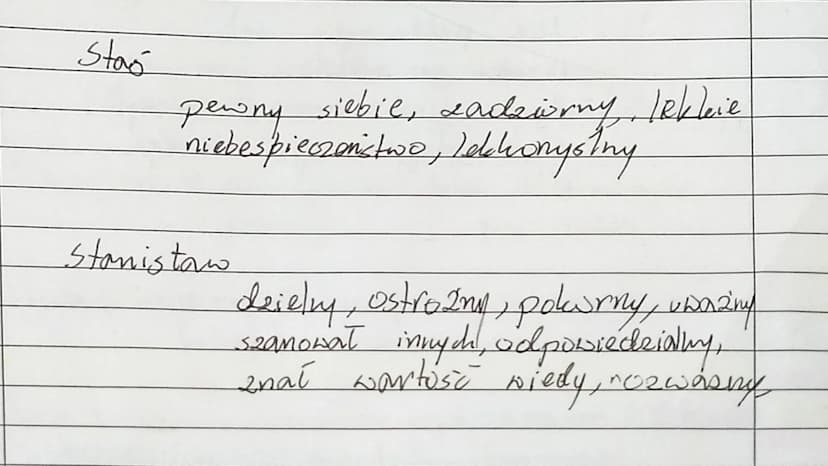 Staś
pewny siebie, zadziorny, lekkie
niebespieczeństwo, lekkomyślny
Stanisław
dzielny, ostrożny, pokorny, uważny
szanował innych, odpowiedzialny,
znał wartość wiedy, rozważny